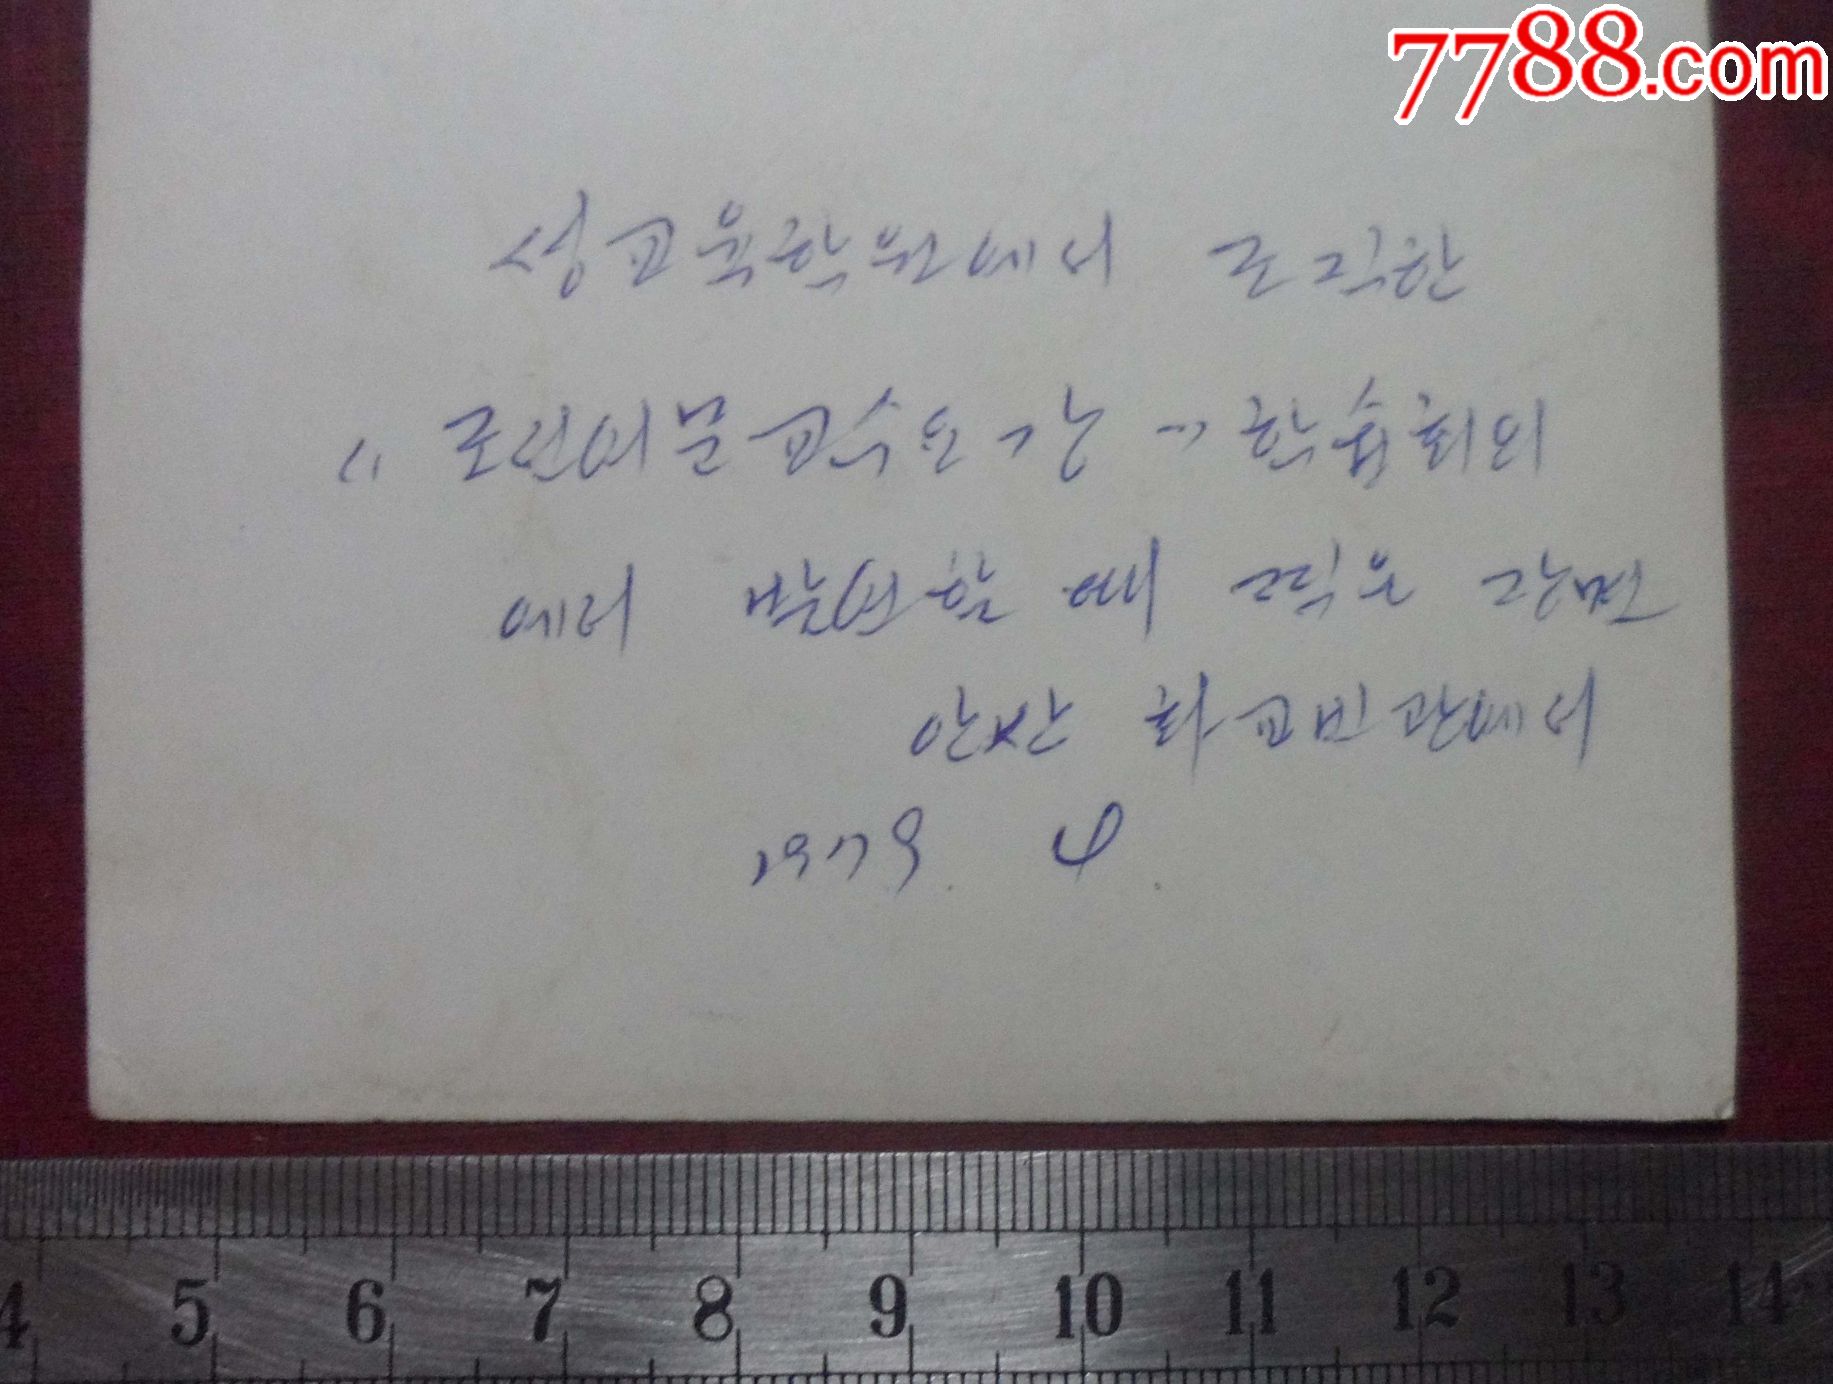 7788.com
성교육학원에서 조직한
"조선어문교수요강"학습회의
에서 발언할 때 찍은 장면
안산 화교빈관에서
1979. 4.
4 5 6 7 8 9 10 11 12 13 14